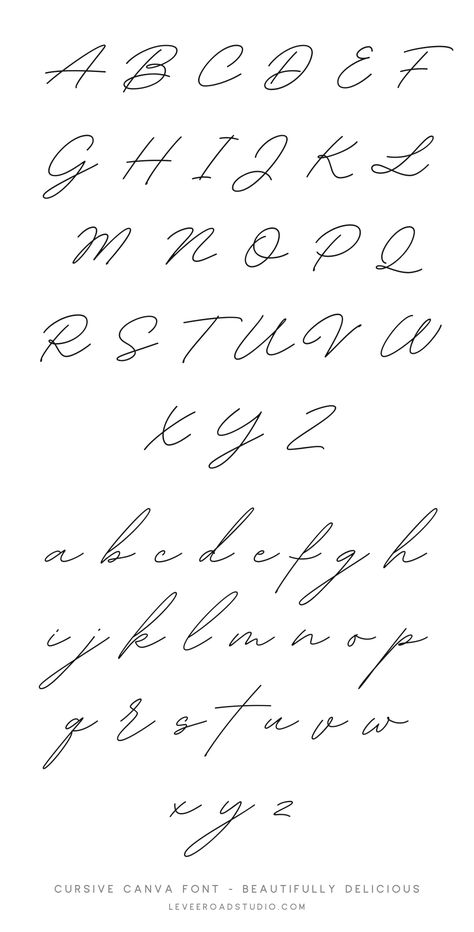 A B C D E F
G H I J K L
M N O P Q
R S T U V W
X Y Z
a b c d e f g h
i j k l m n o p
q r s t u v w
x y z
CURSIVE CANVA FONT - BEAUTIFULLY DELICIOUS
LEVEEROADSTUDIO.COM